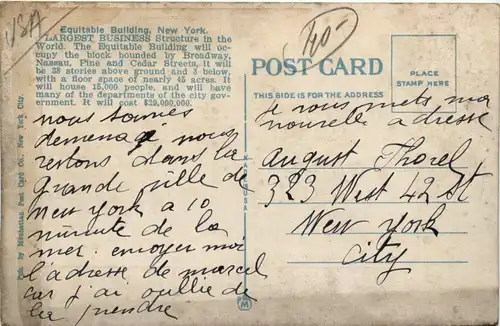 USA
Equitable Building, New York.
LARGEST BUSINESS Structure in the
World. The Equitable Building will oc-
cupy the block bounded by Broadway,
Nassau, Pine and Cedar Streets, it will
be 38 stories above ground and 3 below,
with a floor space of nearly 45 acres. It
will house 15,000 people, and will have
many of the departments of the city gov-
ernment. It will cost $29,000,000.
nous sommes
demenagé nous
restons dans la
grande ville de
New york a 0
minute de la
mer envoyer moi
l'adresse de marcel
car j'ai oullie de
la prendre
Pub. by Manhattan Post Card Co., New York City.
40-
POST CARD
THIS SIDE IS FOR THE ADDRESS
PLACE
STAMP HERE
Je vous mets ma
nouvelle adresse
August Thorel
323 West 42 St
New york
City
M